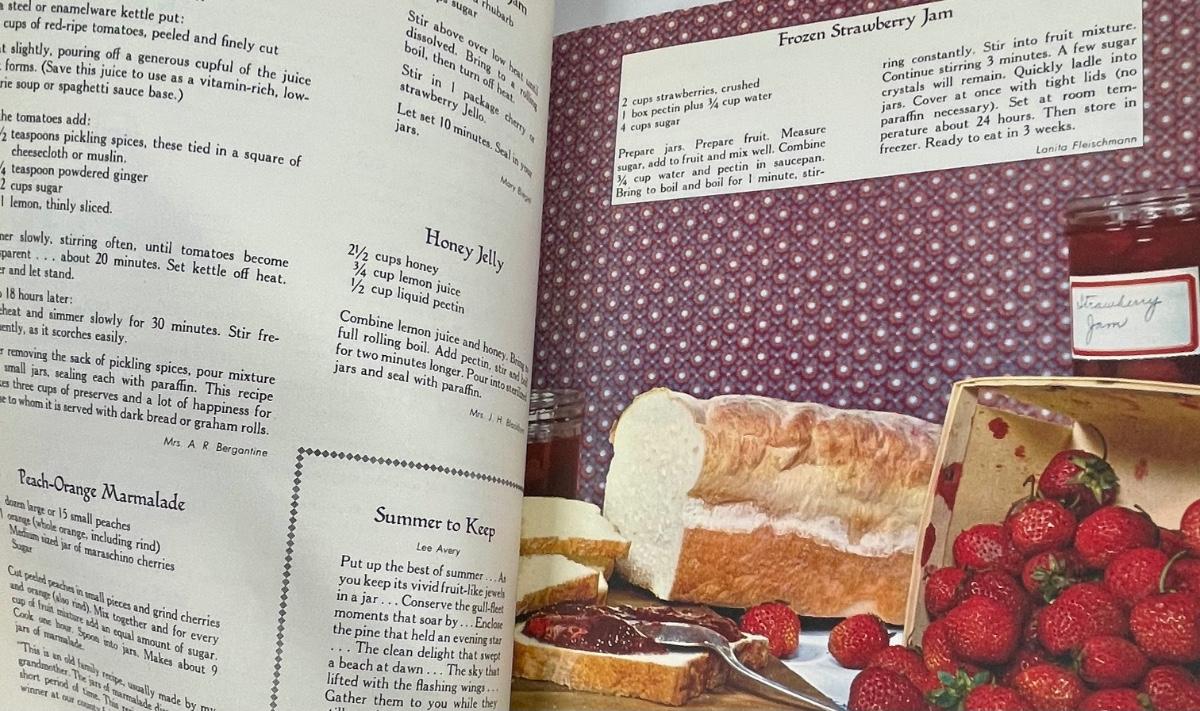 steel or enamelware kettle put:
cups of red-ripe tomatoes, peeled and finely cut
slightly, pouring off a generous cupful of the juice
forms. (Save this juice to use as a vitamin-rich, low-
soup or spaghetti sauce base.)
tomatoes add:
teaspoons pickling spices, these tied in a square of
cheesecloth or muslin.
teaspoon powdered ginger
2 cups sugar
1 lemon, thinly sliced.
slowly, stirring often, until tomatoes become
. . . about 20 minutes. Set kettle off heat.
and let stand.
18 hours later:
and simmer slowly for 30 minutes. Stir fre-
as it scorches easily.
removing the sack of pickling spices, pour mixture
small jars, sealing each with paraffin. This recipe
three cups of preserves and a lot of happiness for
to whom it is served with dark bread or graham rolls.
Mrs. A. R. Bergantine
Peach-Orange Marmalade
dozen large or 15 small peaches
orange (whole orange, including rind)
Medium sized jar of maraschino cherries
Sugar
Cut peeled peaches in small pieces and grind cherries
and orange (also rind). Mix together and for every
cup of fruit mixture add an equal amount of sugar.
Cook one hour. Spoon into jars. Makes about 9
jars of marmalade.
"This is an old family recipe, usually made by my
grandmother. The jars of marmalade
short period of time. This
winner at our county
rhubarb
sugar
Stir above over low heat until
dissolved. Bring to a rolling
boil, then turn off heat.
Stir in 1 package cherry or
strawberry Jello.
Let set 10 minutes. Seal in your
jars.
Mary
Honey Jelly
2½ cups honey
¾ cup lemon juice
½ cup liquid pectin
Combine lemon juice and honey. Bring to
full rolling boil. Add pectin, stir and boil
for two minutes longer. Pour into sterilized
jars and seal with paraffin.
Mrs. J. H.
Summer to Keep
Lee Avery
Put up the best of summer . . . As
you keep its vivid fruit-like jewels
in a jar . . . Conserve the gull-fleet
moments that soar by . . . Enclose
the pine that held an evening star
. . . The clean delight that swept
a beach at dawn . . . The sky that
lifted with the flashing wings . . .
Gather them to you while they
Frozen Strawberry Jam
2 cups strawberries, crushed
1 box pectin plus ¾ cup water
4 cups sugar
Prepare jars. Prepare fruit. Measure
sugar, add to fruit and mix well. Combine
¾ cup water and pectin in saucepan.
Bring to boil and boil for 1 minute, stir-
ring constantly. Stir into fruit mixture.
Continue stirring 3 minutes. A few sugar
crystals will remain. Quickly ladle into
jars. Cover at once with tight lids (no
paraffin necessary). Set at room tem-
perature about 24 hours. Then store in
freezer. Ready to eat in 3 weeks.
Lanita Fleischmann
Strawberry
Jam